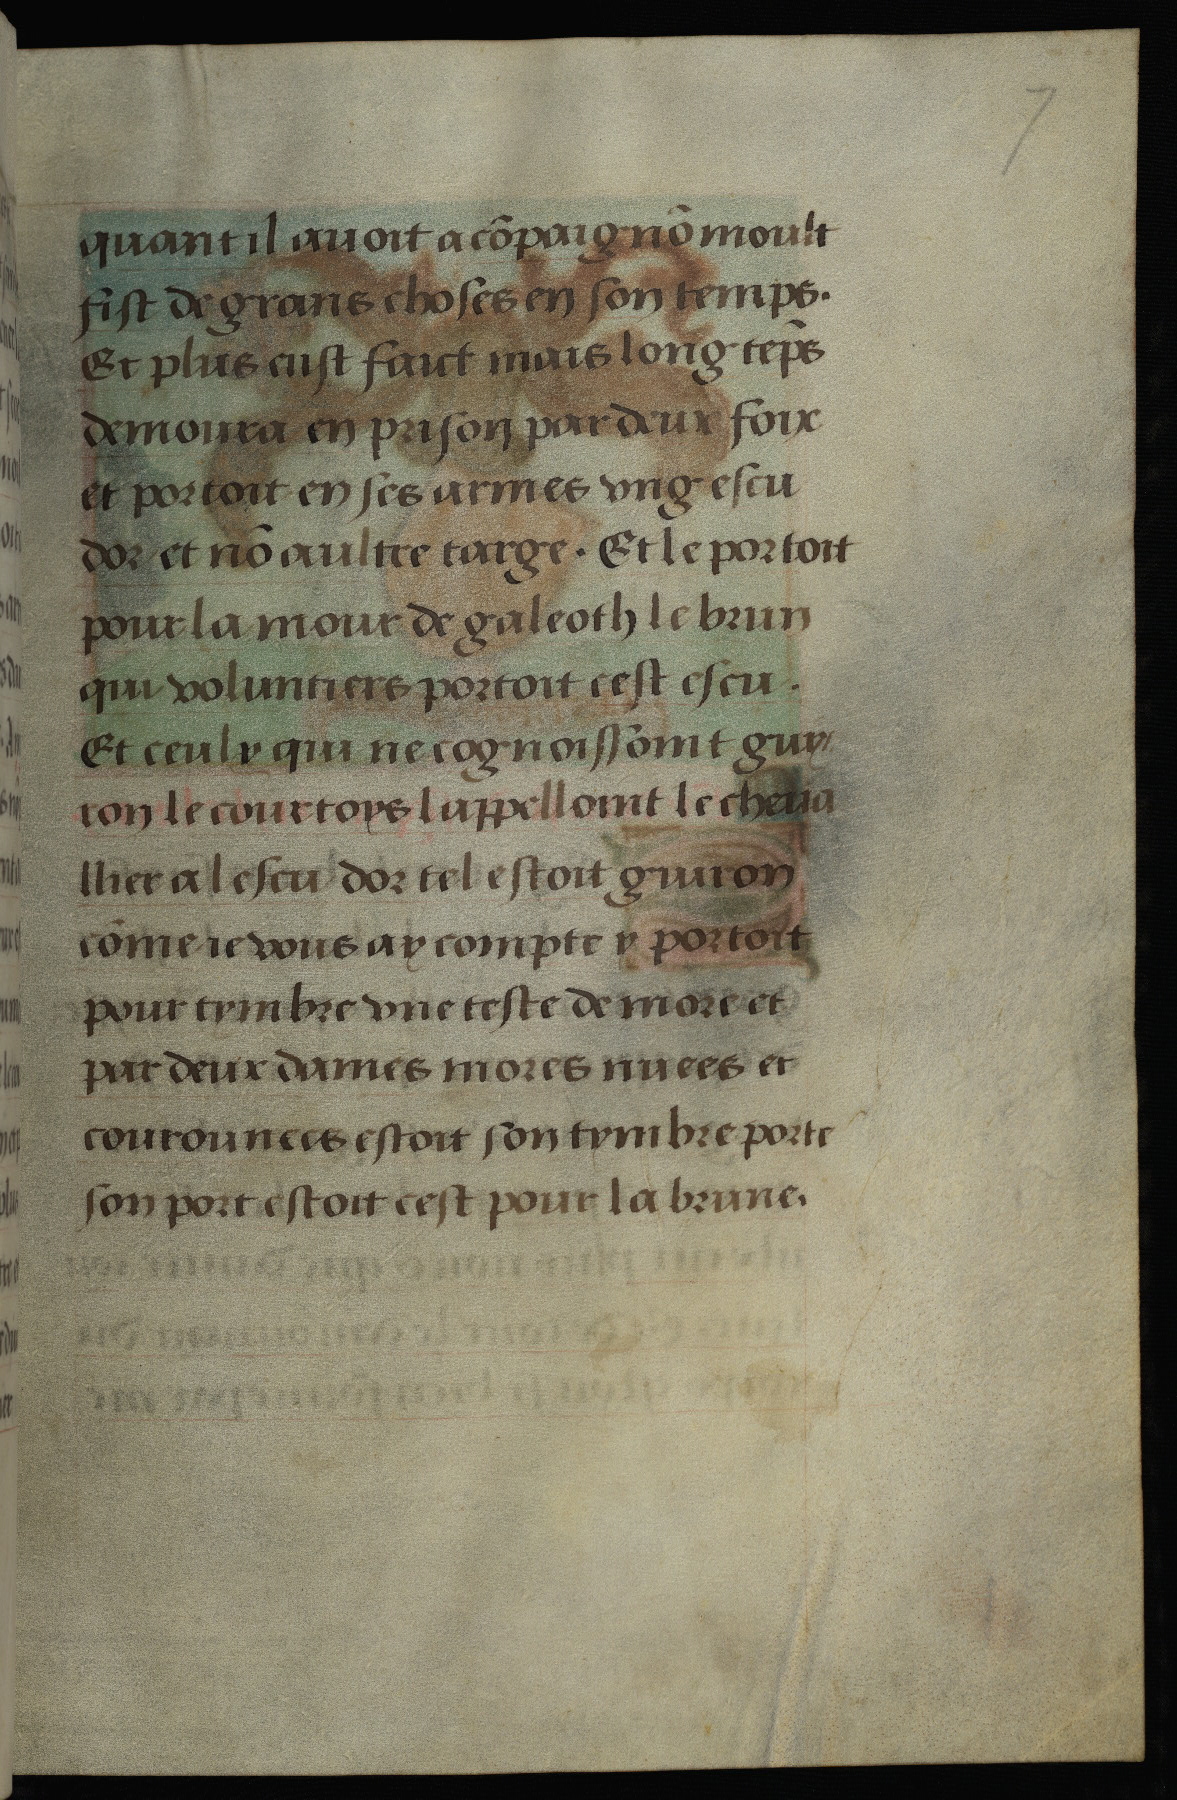 7
quant il auoit acōpaignō moult
fist de grans choses en son temps.
Et plus eust faict mais long tēps
demoura en prison par deux foix
et portoit en ses armes vng escu
dor et nō aultre targe. Et le portoit
pour lamour de galeoth le brun
qui voluntiers portoit cest escu.
Et ceulx qui ne cognoissōint guy
ron le courtoys lappelloint le cheua
llier a lescu dor tel estoit guiron
cōme ie vous ay compte y portoit
pour tymbre vne teste de more et
par deux dames mores nuees et
courounees estoit son tymbre porte
son port estoit cest pour la brune.